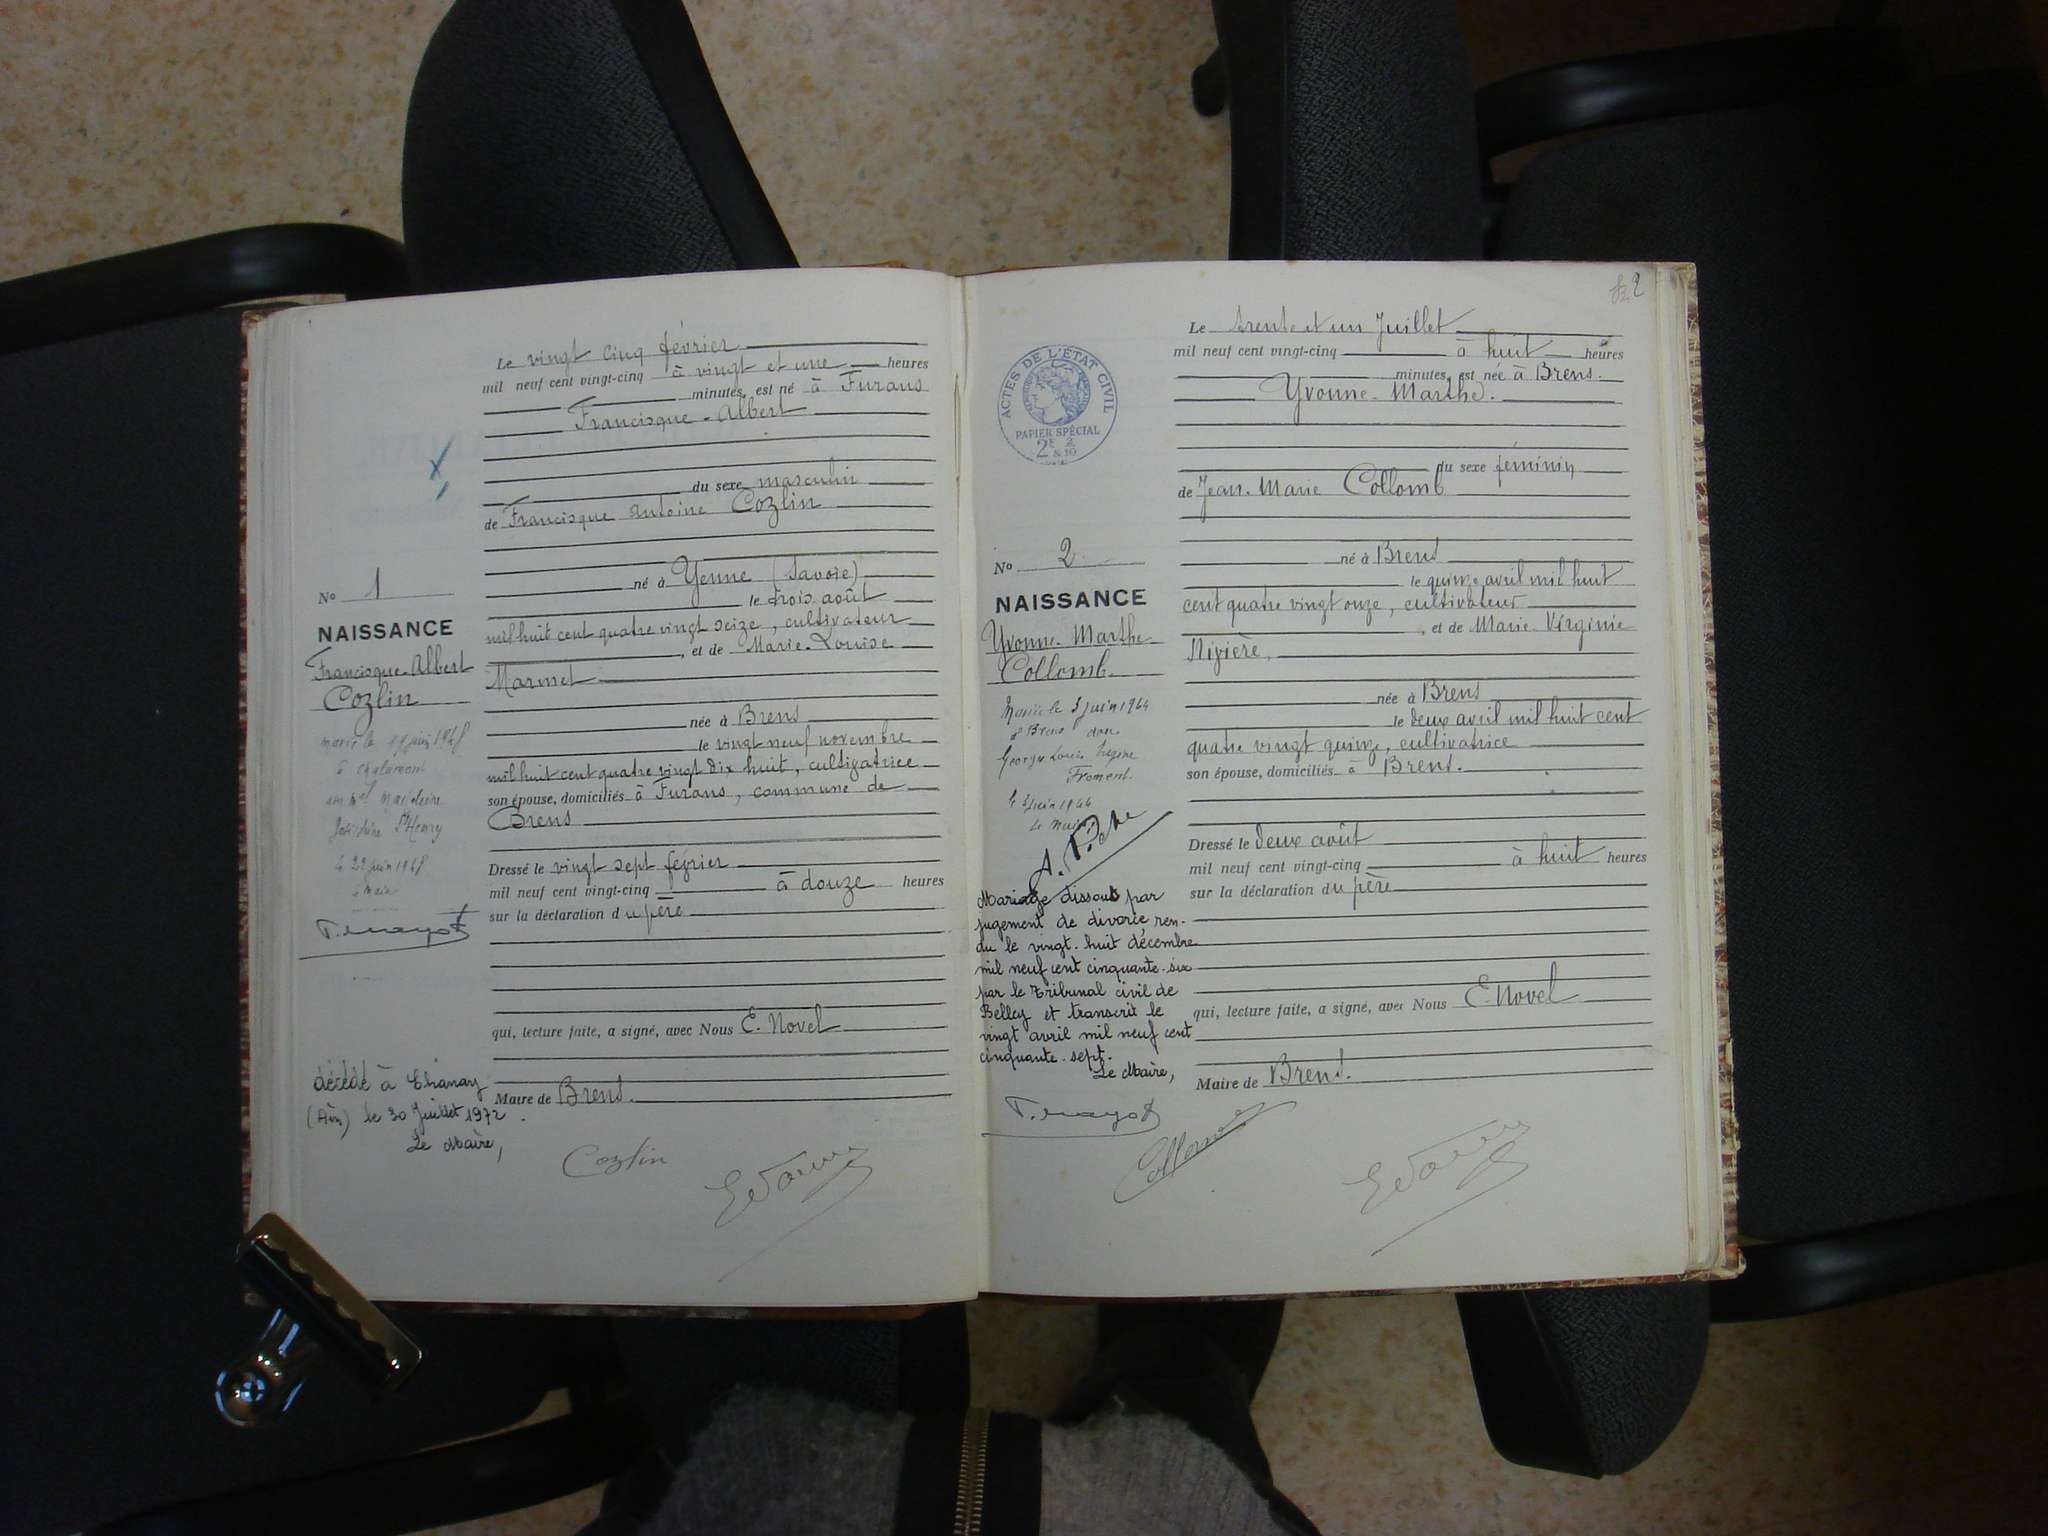 Le vingt cinq février
mil neuf cent vingt-cinq à vingt et une heures
minutes, est né à Furans
Francisque-Albert
du sexe masculin
de Francisque Antoine Cozlin
né à Yenne (Savoie)
le trois août
mil huit cent quatre vingt seize, cultivateur
, et de Marie-Louise
Marmet
née à Brens
le vingt neuf novembre
mil huit cent quatre vingt dix huit, cultivatrice
son épouse, domiciliés à Furans, commune de
Brens
Dressé le vingt sept février
mil neuf cent vingt-cinq à douze heures
sur la déclaration du père
qui, lecture faite, a signé, avec Nous E. Novel
Maire de Brens.
Cozlin
No 1
NAISSANCE
Francisque-Albert
Cozlin
marié le juin
à Chalamont
le 22 juin
le Maire
décédé à Chanay
(Ain) le 30 Juillet 1972.
Le Maire,
2
ACTES DE L'ÉTAT CIVIL
PAPIER SPÉCIAL
Le trente et un Juillet
mil neuf cent vingt-cinq à huit heures
minutes, est née à Brens.
Yvonne-Marthe.
du sexe féminin
de Jean-Marie Collomb
né à Brens
le quinze avril mil huit
cent quatre vingt onze, cultivateur
, et de Marie-Virginie
née à Brens
le deux avril mil huit cent
quatre vingt quinze, cultivatrice
son épouse, domiciliés à Brens.
Dressé le deux août
mil neuf cent vingt-cinq à huit heures
sur la déclaration du père
qui, lecture faite, a signé, avec Nous E. Novel
Maire de Brens.
Collomb
No 2
NAISSANCE
Yvonne-Marthe
Collomb
Mariée le 3 juin 1944
à Brens avec
Georges Louis Eugène
Froment.
le 3 juin 1944
Le Maire
Mariage dissous par
jugement de divorce, ren-
du le vingt-huit décembre
mil neuf cent cinquante-six
par le Tribunal civil de
Belley et transcrit le
vingt avril mil neuf cent
cinquante-sept.
Le Maire,